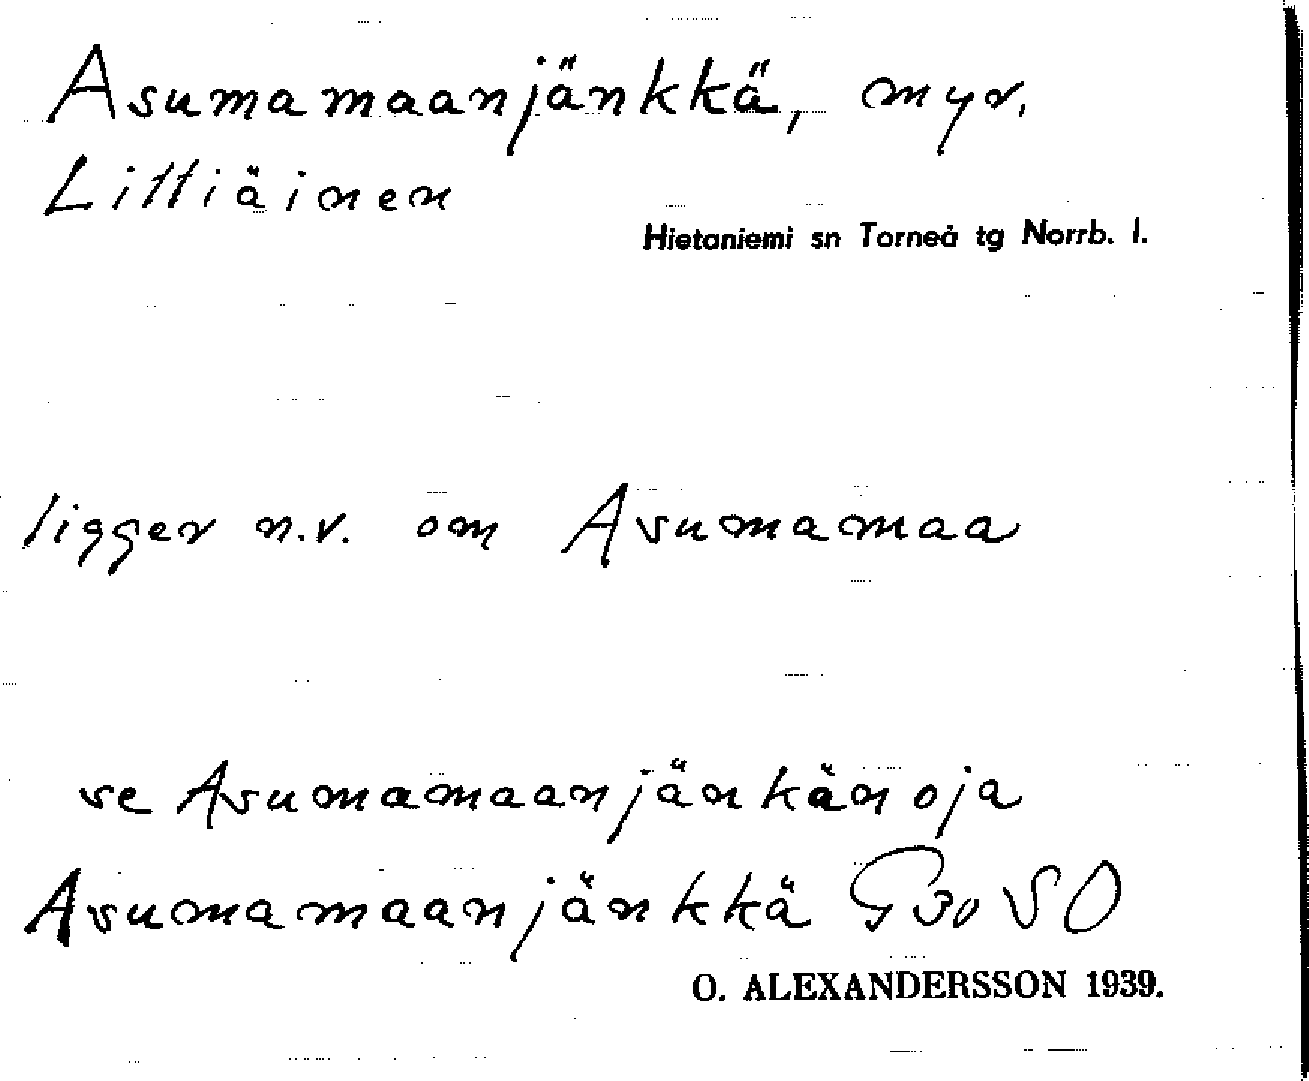 Asumamaanjänkkä, myr.
Littiäinen
Hietaniemi sn Torneå tg Norrb. l.
ligger n.v. om Asumamaa
se Asumamaanjänkänoja
Asumamaanjänkkä G30 SO
O. ALEXANDERSSON 1939.